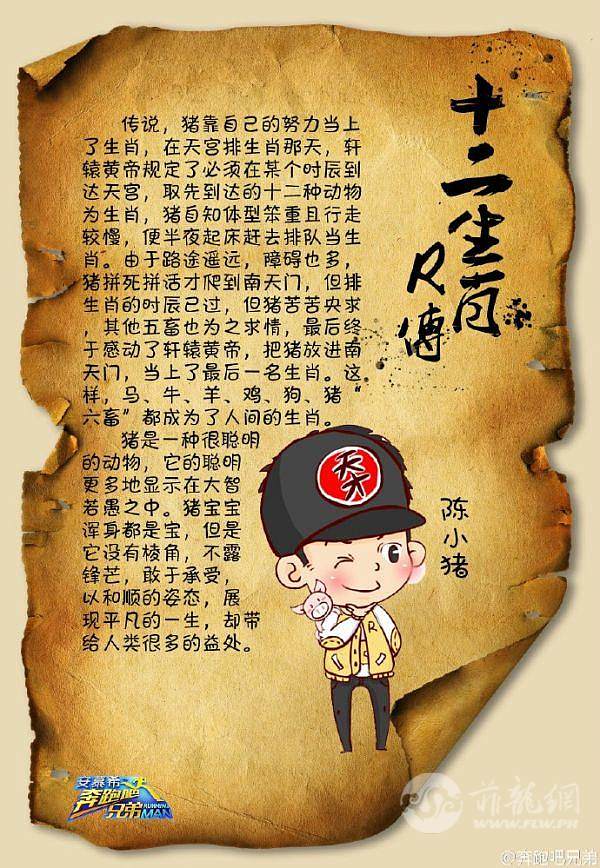 十二生肖
R傳
传说，猪靠自己的努力当上
了生肖，在天宫排生肖那天，轩
辕黄帝规定了必须在某个时辰到
达天宫，取先到达的十二种动物
为生肖，猪自知体型笨重且行走
较慢，便半夜起床赶去排队当生
肖。由于路途遥远，障碍也多，
猪拼死拼活才爬到南天门，但排
生肖的时辰已过，但猪苦苦央求
，其他五畜也为之求情，最后终
于感动了轩辕黄帝，把猪放进南
天门，当上了最后一名生肖。这
样，马、牛、羊、鸡、狗、猪“
六畜”都成为了人间的生肖。
猪是一种很聪明
的动物，它的聪明
更多地显示在大智
若愚之中。猪宝宝
浑身都是宝，但是
它没有棱角，不露
锋芒，敢于承受，
以和顺的姿态，展
现平凡的一生，却带
给人类很多的益处。
天才
R
陈小猪
安慕希
奔跑吧
兄弟
RUNNING
MAN
菲龍網
WWW.FLW.PH
@奔跑吧兄弟